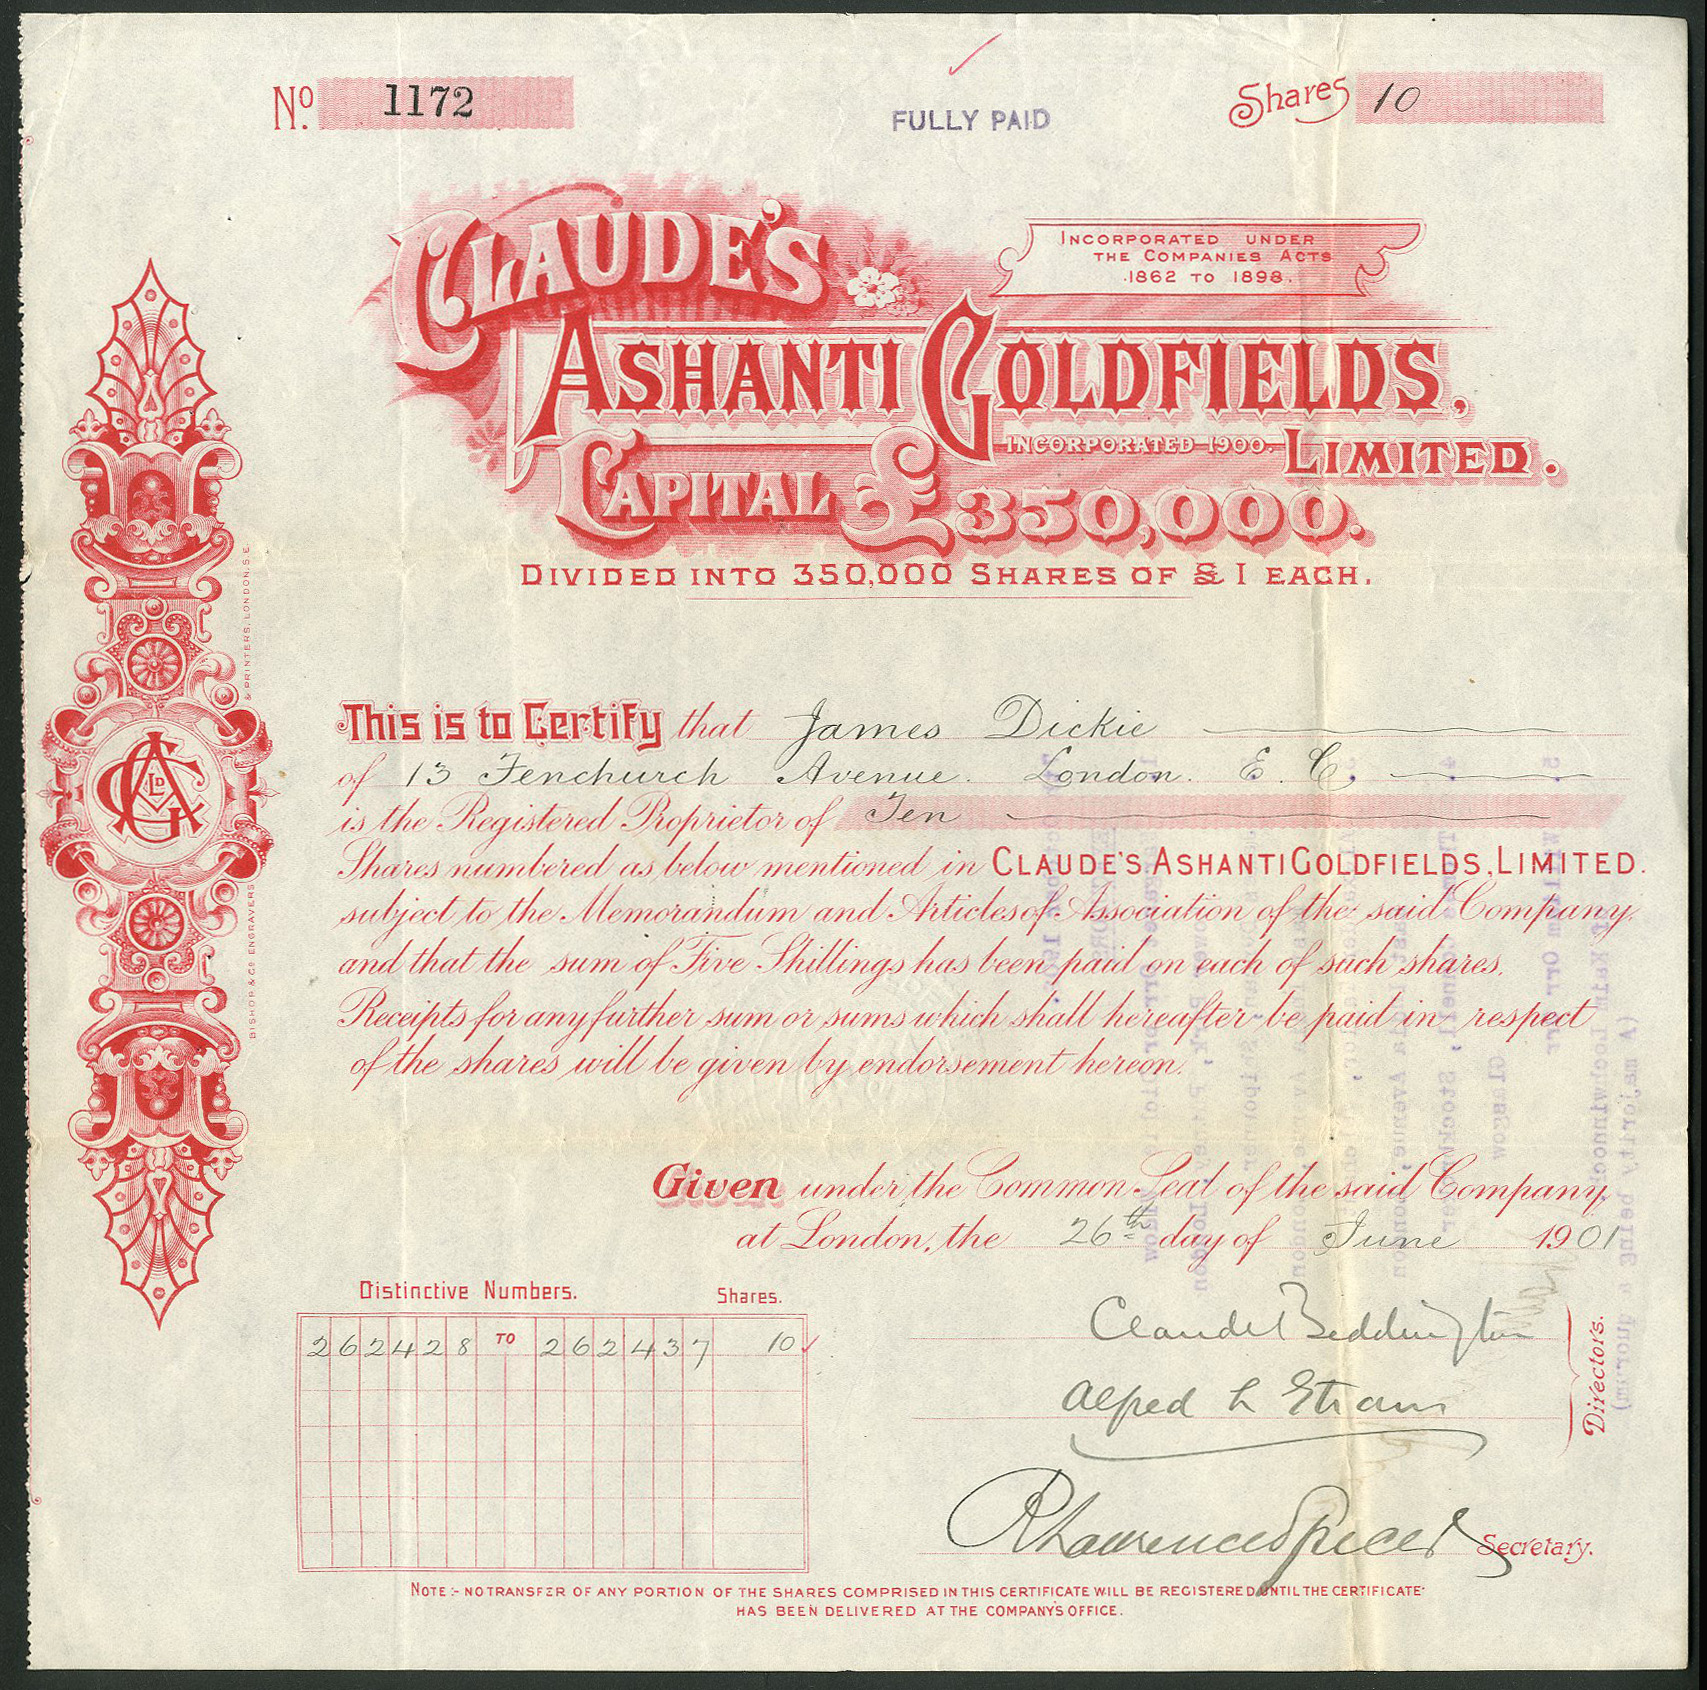 No. 1172
FULLY PAID
Shares 10
CLAUDE'S
INCORPORATED UNDER
THE COMPANIES ACTS
1862 TO 1898.
ASHANTI GOLDFIELDS,
INCORPORATED 1900. LIMITED.
CAPITAL £350,000.
DIVIDED INTO 350,000 SHARES OF £1 EACH.
This is to Certify that James Dickie
of 13 Fenchurch Avenue. London. E. C.
is the Registered Proprietor of Ten
Shares numbered as below mentioned in CLAUDE'S ASHANTI GOLDFIELDS, LIMITED.
subject to the Memorandum and Articles of Association of the said Company,
and that the sum of Five Shillings has been paid on each of such shares.
Receipts for any further sum or sums which shall hereafter be paid in respect
of the shares will be given by endorsement hereon.
Given under the Common Seal of the said Company,
at London, the 26th day of June 1901
Distinctive Numbers. Shares.
262428 TO 262437 10
Claude Beddington
Alfred L Straus
Directors.
Secretary.
NOTE:- NO TRANSFER OF ANY PORTION OF THE SHARES COMPRISED IN THIS CERTIFICATE WILL BE REGISTERED UNTIL THE CERTIFICATE
HAS BEEN DELIVERED AT THE COMPANY'S OFFICE.
BISHOP & Co ENGRAVERS & PRINTERS, LONDON, S.E.